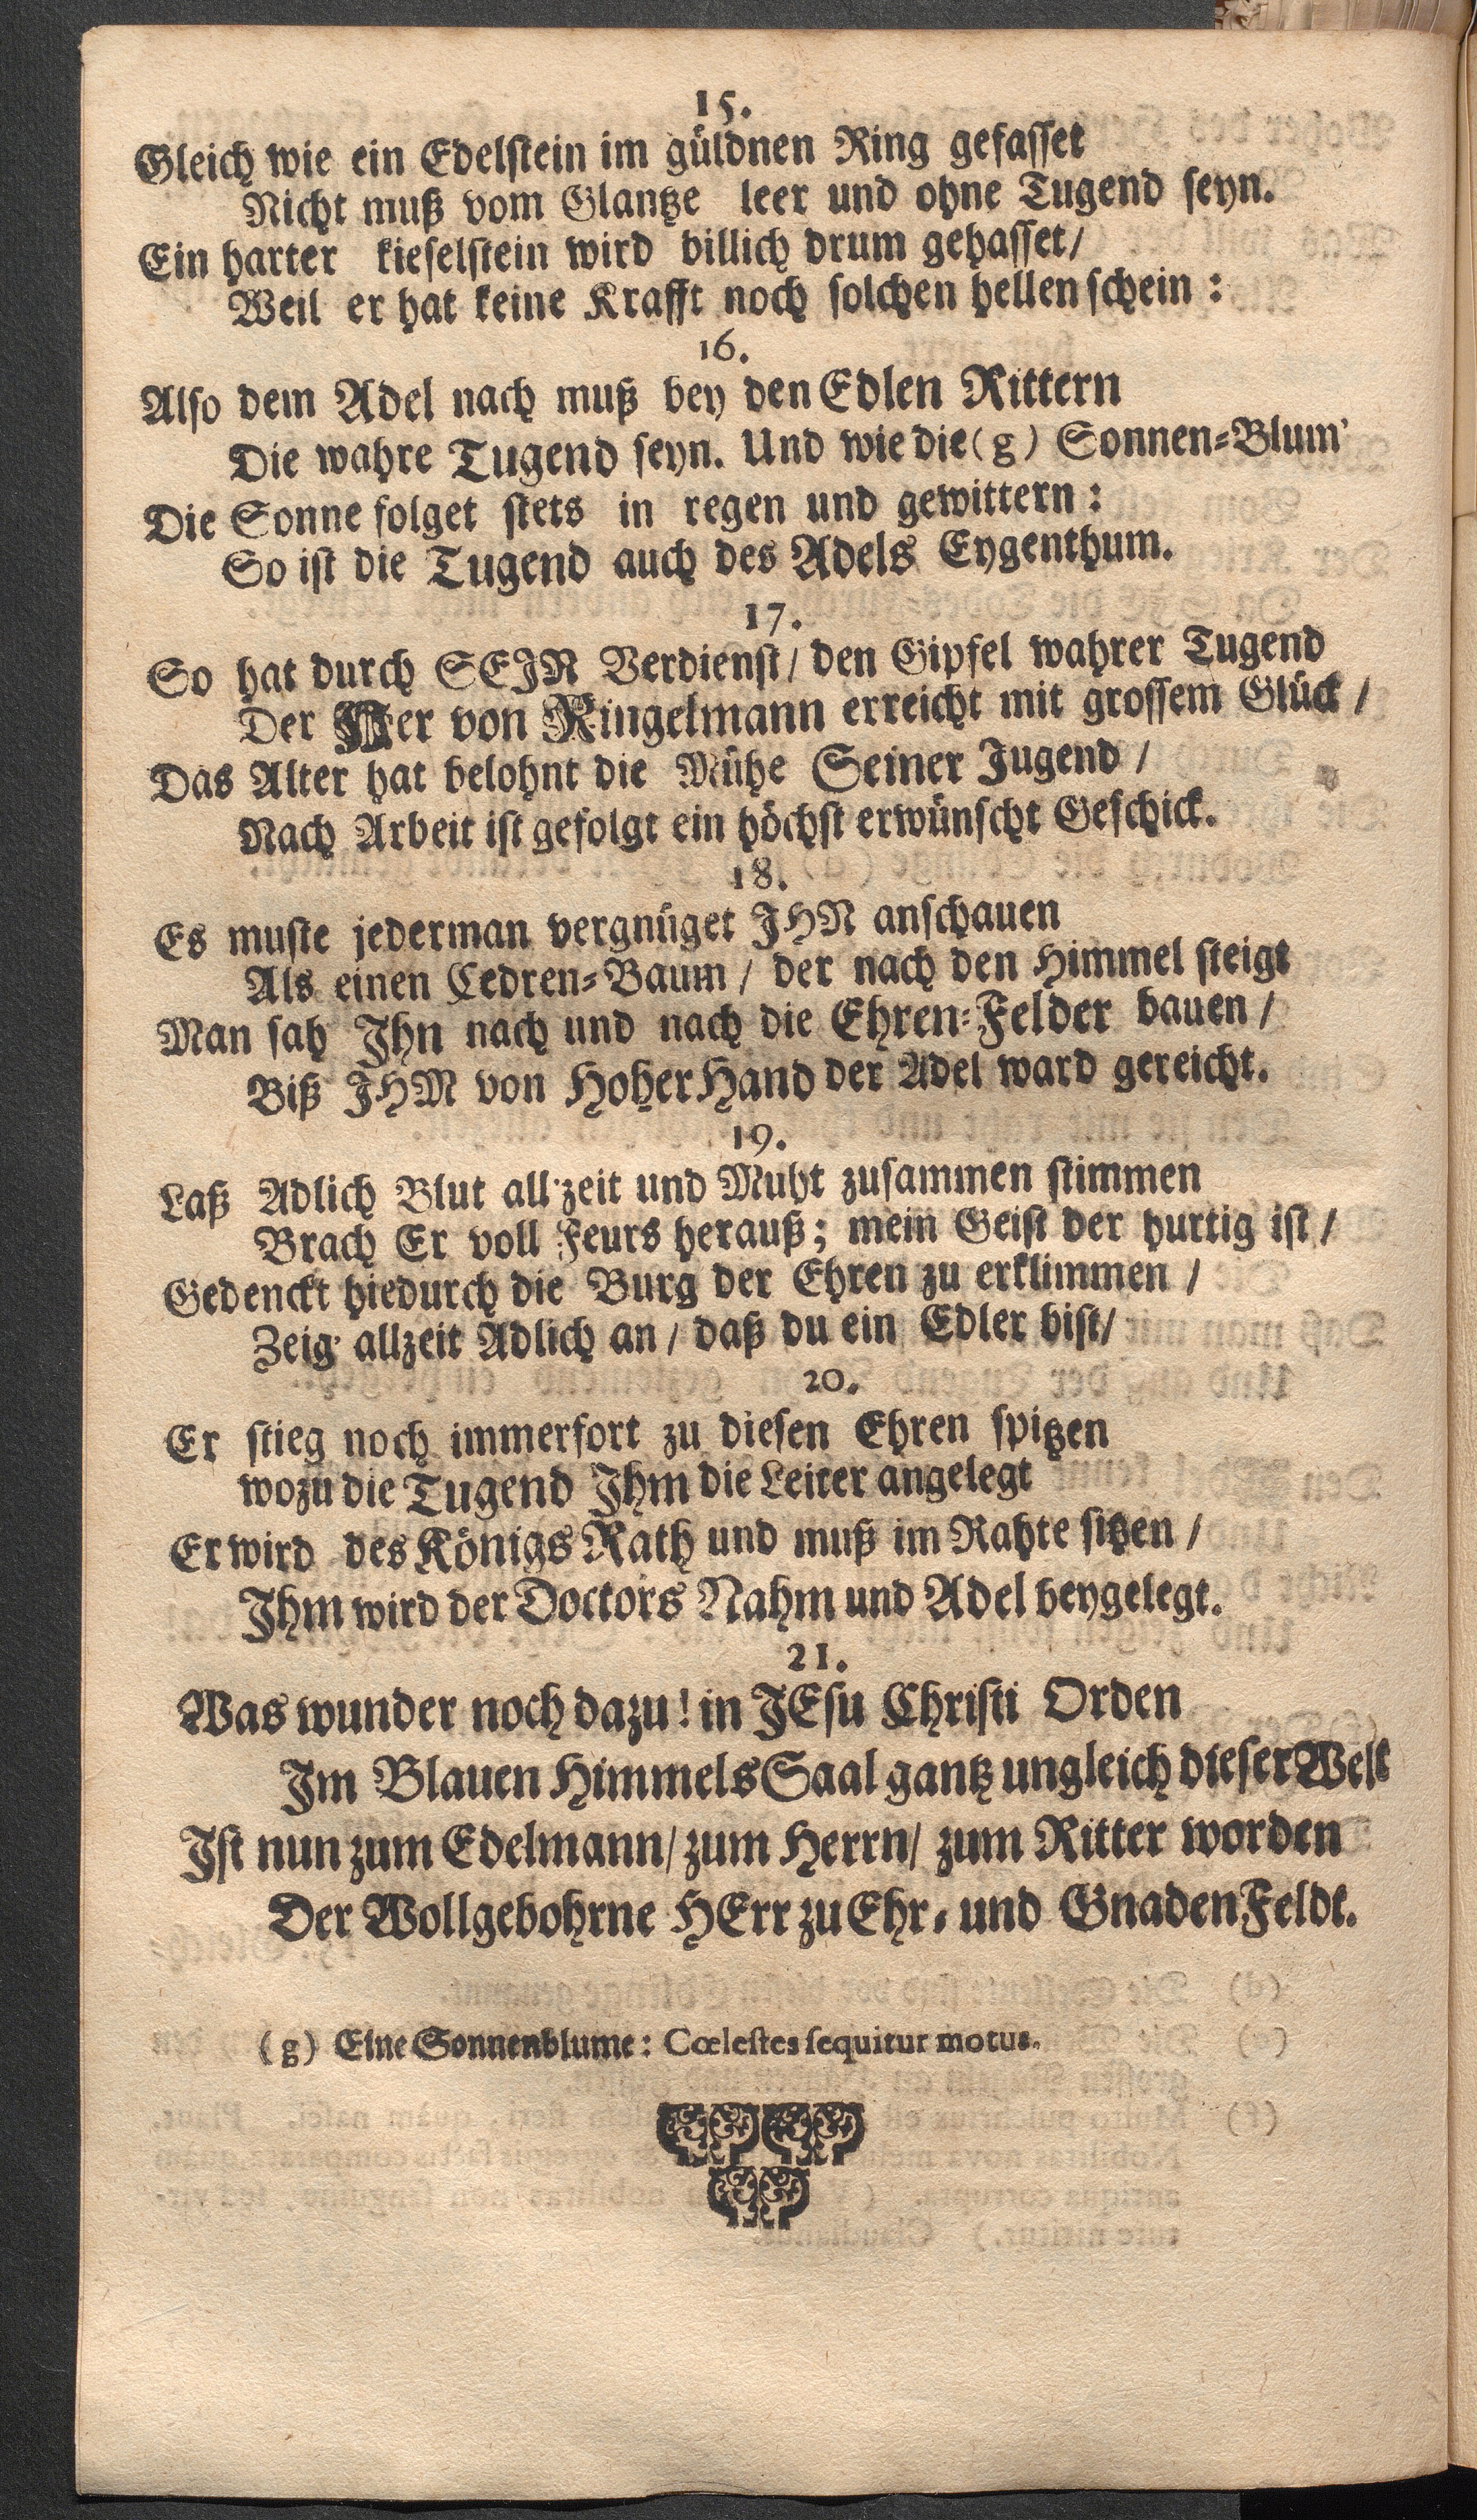 15.
Gleich wie ein Edelstein im güldnen Ring gefasset
Nicht muß vom Glantze leer und ohne Tugend seyn.
Ein harter kieselstein wird billich drum gehasset/
Weil er hat keine Krafft noch solchen hellen schein:
16.
Also dem Adel nach muß bey den Edlen Rittern
Die wahre Tugend seyn. Und wie die (g) Sonnen-Blum'
Die Sonne folget stets in regen und gewittern:
So ist die Tugend auch des Adels Eygenthum.
17.
So hat durch SEJN Verdienst/ den Gipfel wahrer Tugend
Der Her von Ringelmann erreicht mit grossem Glück/
Das Alter hat belohnt die Mühe Seiner Jugend/
Nach Arbeit ist gefolgt ein höchst erwünscht Geschick.
18.
Es muste jederman vergnüget JHN anschauen
Als einen Cedren-Baum/ der nach den Himmel steigt
Man sah Jhn nach und nach die Ehren-Felder bauen/
Biß JHM von Hoher Hand der Adel ward gereicht.
19.
Laß Adlich Blut all'zeit und Muht zusammen stimmen
Brach Er voll Feurs herauß; mein Geist der hurtig ist/
Gedenckt hiedurch die Burg der Ehren zu erklimmen/
Zeig' allzeit Adlich an/ daß du ein Edler bist/
20.
Er stieg noch immerfort zu diesen Ehren spitzen
wozu die Tugend Jhm die Leiter angelegt
Er wird des Königs Rath und muß im Rahte sitzen/
Jhm wird der Doctors Nahm und Adel beygelegt.
21.
Was wunder noch dazu! in JEsu Christi Orden
Jm Blauen Himmels Saal gantz ungleich dieser Welt
Jst nun zum Edelmann/ zum Herrn/ zum Ritter worden
Der Wollgebohrne HErr zu Ehr- und Gnaden Feldt.
(g) Eine Sonnenblume: Cœlestes sequitur motus.